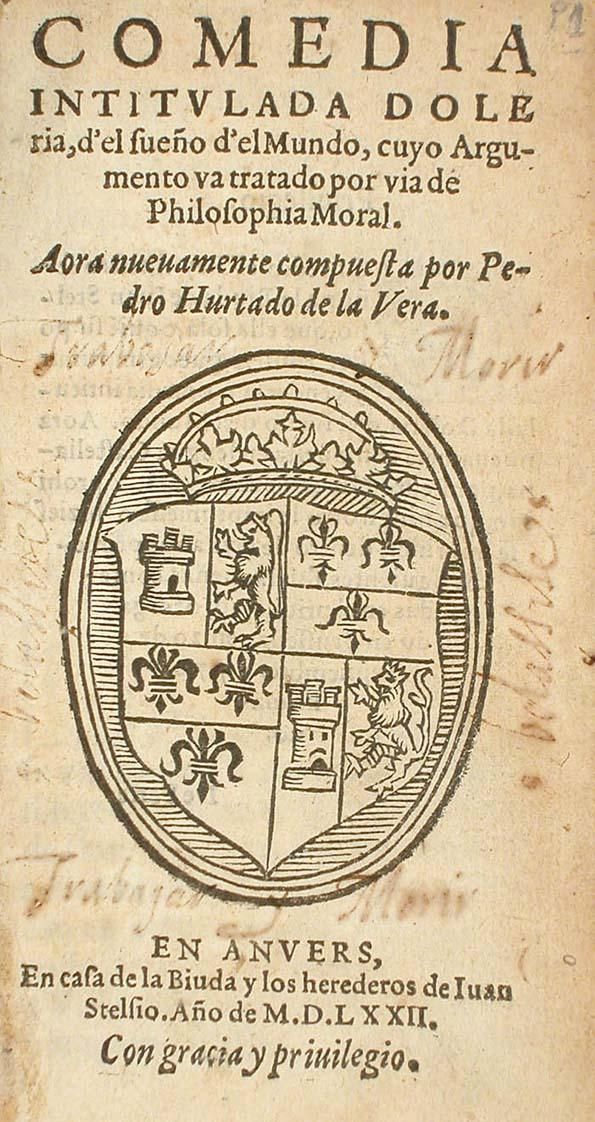 COMEDIA
INTITVLADA DOLE
ria, d'el ſueño d'el Mundo, cuyo Argu-
mento va tratado por via de
Philoſophia Moral.
Aora nueuamente compueſta por Pe-
dro Hurtado de la Vera.
Trabajar y Morir
Trabajar y Morir
EN ANVERS,
En caſa de la Biuda y los herederos de Iuan
Stelſio. Año de M.D.LXXII.
Con gracia y priuilegio.